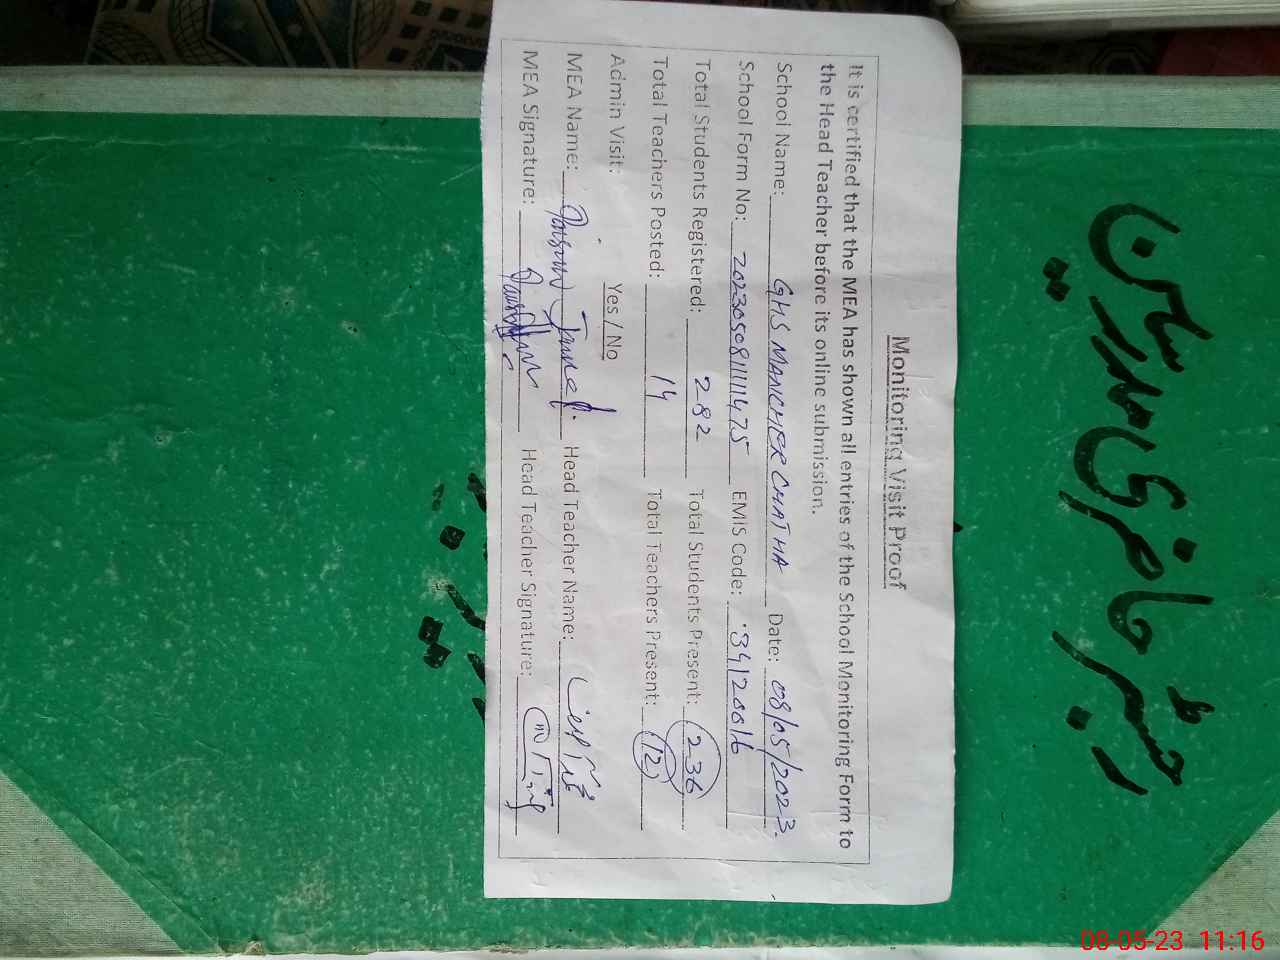 Monitoring Visit Proof
It is certified that the MEA has shown all entries of the School Monitoring Form to
the Head Teacher before its online submission.
School Name: GHS MANCHER CHATHA Date: 08/05/2023.
School Form No: 20230508111475 EMIS Code: 34120016
Total Students Registered: 282 Total Students Present: 236
Total Teachers Posted: 14 Total Teachers Present: 12
Admin Visit: Yes / No
MEA Name: Head Teacher Name:
MEA Signature: Head Teacher Signature:
رجسٹر حاضری مدرسین
08-05-23 11:16